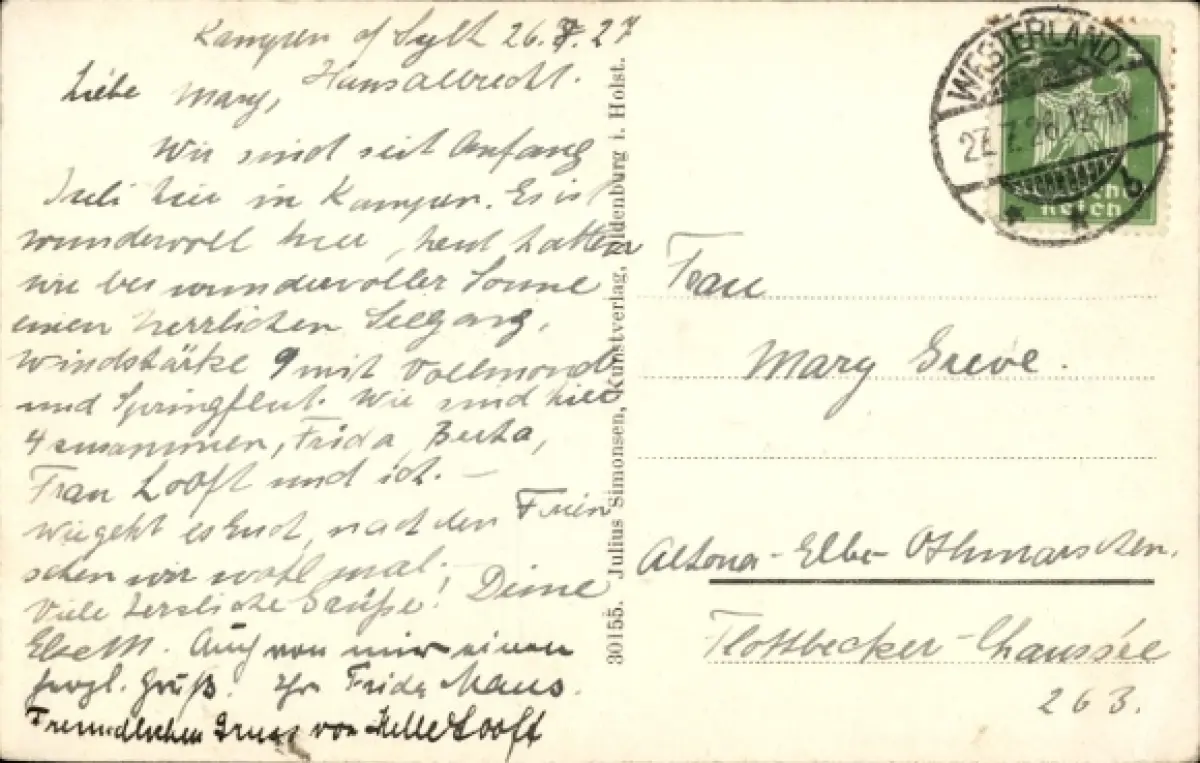 Kampen a/ Sylt 26.7.27
Hansalbrecht.
Liebe Mary,
Wir sind seit Anfang
Juli hier in Kampen. Es ist
wundervoll hier, heut hatten
wir bei wundervoller Sonne
einen herrlichen Seegang,
Windstärke 9 mit Vollmond
und Springflut. Wir sind hier
4 zusammen, Frida, Berta,
Frau Looft und ich. —
Wie geht es Euch, nach den Ferien
sehen wir wohl mal.
Viele herzliche Grüße! Deine
Else M. Auch von mir einen
herzl. Gruß. Ihr Frida Maas.
Freundlichen Gruss von Looft
30155. Julius Simonsen, Kunstverlag, Oldenburg i. Holst.
WESTERLAND
27.7.
Deutsches
Reich
Frau
Mary Greve.
Altona-Elbe Othmarschen.
Flottbecker-Chaussée
263.